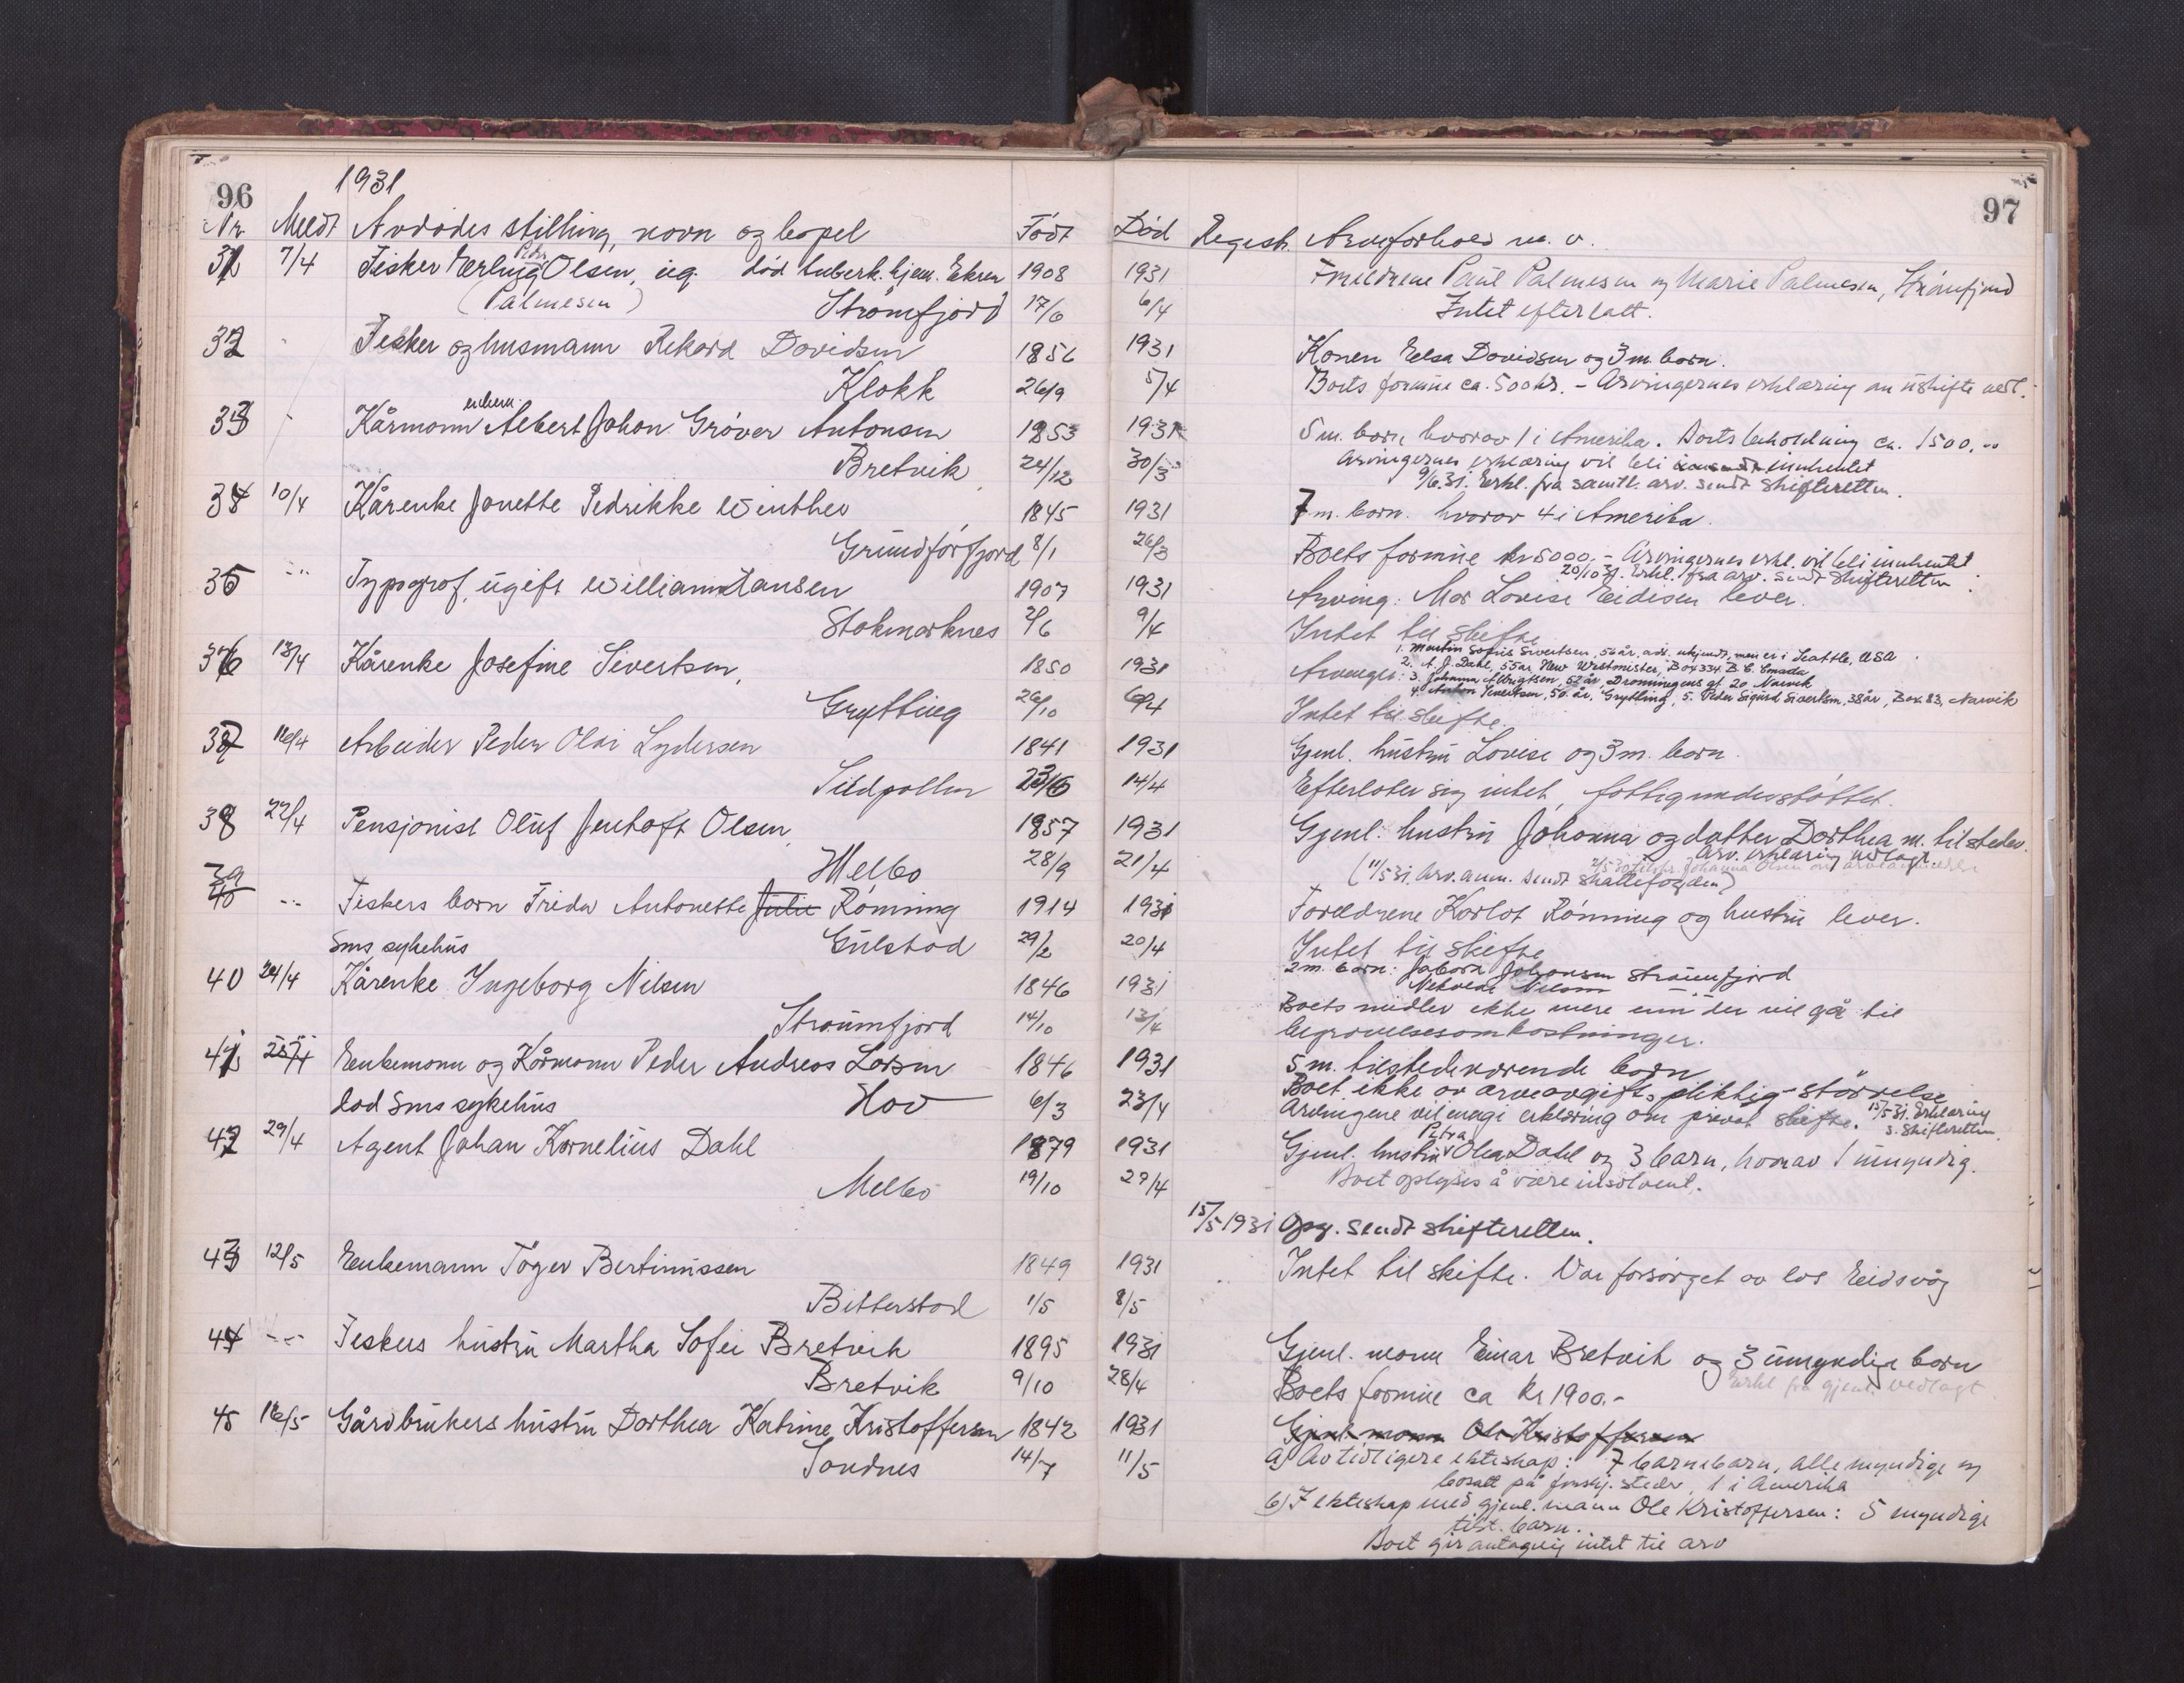 96
1931
Nr Meldt Avdødes stilling, navn og bopel Født Død
31 7/4 Fisker Erling Peder Olsen, ug. død tuberk. hjem. Ekren 1908 1931
(Palmesen) Straumfjord 17/6 6/4
32 Fisker og husmann Rikard Davidsen 1856 1931
Klokk 26/9 5/4
33 Kårmann enkem. Albert Johan Grøver Antonsen 1853 1931
Bretvik 24/12 30/3
34 10/4 Kårenke Jonette Pedrikke Winther 1845 1931
Grundforfjord 8/1 26/3
35 -"- Typograf, ugift William Hansen 1907 1931
Stokmarknes 2/6 9/4
36 13/4 Kårenke Josefine Sivertsen, 1850 1931
Grytting 26/10 6/4
37 16/4 Arbeider Peder Olai Lydersen 1841 1931
Sildpollen 23/6 14/4
38 22/4 Pensjonist Oluf Jentoft Olsen, 1857 1931
Melbo 28/9 21/4
39 -"- Fiskers barn Frida Antonette Julie Rønning 1914 1931
Sms sykehus Gulstad 29/2 20/4
40 24/4 Kårenke Ingeborg Nilsen 1846 1931
Straumfjord 14/10 13/4
41 25/4 Enkemann og Kårmann Peder Andreas Larsen 1846 1931
død Sms sykehus Hov 6/3 23/4
42 29/4 Agent Johan Kornelius Dahl 1879 1931
Melbo 19/10 27/4
43 12/5 Enkemann Tøger Bertinussen 1849 1931
Bitterstad 1/5 8/5
44 -"- Fiskers hustru Martha Sofie Bretvik 1895 1931
Bretvik 9/10 28/4
45 16/5 Gårdbrukers hustru Dorthea Katrine Kristoffersen 1842 1931
Sandnes 14/7 11/5
97
Regestr. Arveforhold m. v.
Foreldrene Paul Palmesen og Marie Palmesen, Straumfjord
Intet efterlatt.
Konen Elsa Davidsen og 3 m. barn.
Boets formue ca. 500 kr. - Arvingernes erklæring om uskifte vedl.
5 m. barn hvorav 1 i Amerika. Boets beholdning ca. 1500,-
Arvingernes erklæring vil bli innhentet
9/6.31. Erkl. fra samtl. arv. sendt Skifteretten.
7 m. barn. hvorav 4 i Amerika.
Boets formue kr 5000.- Arvingernes erkl. vil bli innhentet
20/10 31. Erkl. fra arv. sendt Skifteretten.
Arving: Mor Lovise Eidisen lever.
Intet til skifte
1. Martin Sofus Sivertsen, 56 år, adr. ukjendt, men er i Seattle, USA.
2. A. J. Dahl, 55 år New Westmister, Box 334 B. C. Canada
Arvinger: 3. Johanna Albrigtsen, 52 år, Dronningens gt. 20 Narvik
4. Anton Sivertsen, 50 år, Grytting, 5. Peder Sigurd Sivertsen, 38 år, Box 83, Narvik
Intet til skifte.
Gjenl. hustru Lovise og 3 m. barn.
Efterlater sig intet, fattigunderstøttet.
Gjenl. hustru Johanna og datter Dorthea m. tilstede.
Arv. erklæring vedlagt.
(11/5 31. Arv. anm. sendt Skattefogden)
Foreldrene Karlot Rønning og hustru lever.
Intet til skifte
2 m. barn: Jakora Johansen Straumfjord
Nikolai Nilsen -"-
Boets midler ikke mere enn der vil gå til
begravelsesomkostninger.
5 m. tilstedeværende barn
Boet ikke av arveavgifts pliktig størrelse
Arvingene vil inngi erklæring om privat skifte. 15/5 31. Erklæring
s. Skifteretten.
Gjenl. hustru Petra Olea Dahl og 3 barn, hvorav 1 umyndig.
Boet oplyses å være insolvent.
15/5 1931 Opg. sendt skifteretten.
Intet til skifte. Var forsørget av los Eidsvåg
Gjenl. mann Einar Bretvik og 3 umyndige barn
Erkl fra gjenl. vedlagt
Boets formue ca Kr 1900.-
Gjenl. mann Ole Kristoffersen
a) Av tidligere ekteskap: 7 barnebarn, alle myndige og
bosatt på forskj. steder, 1 i Amerika
b) I ekteskap med gjenl. mann Ole Kristoffersen: 5 myndige
tilst. barn.
Boet gir antagelig intet til arv